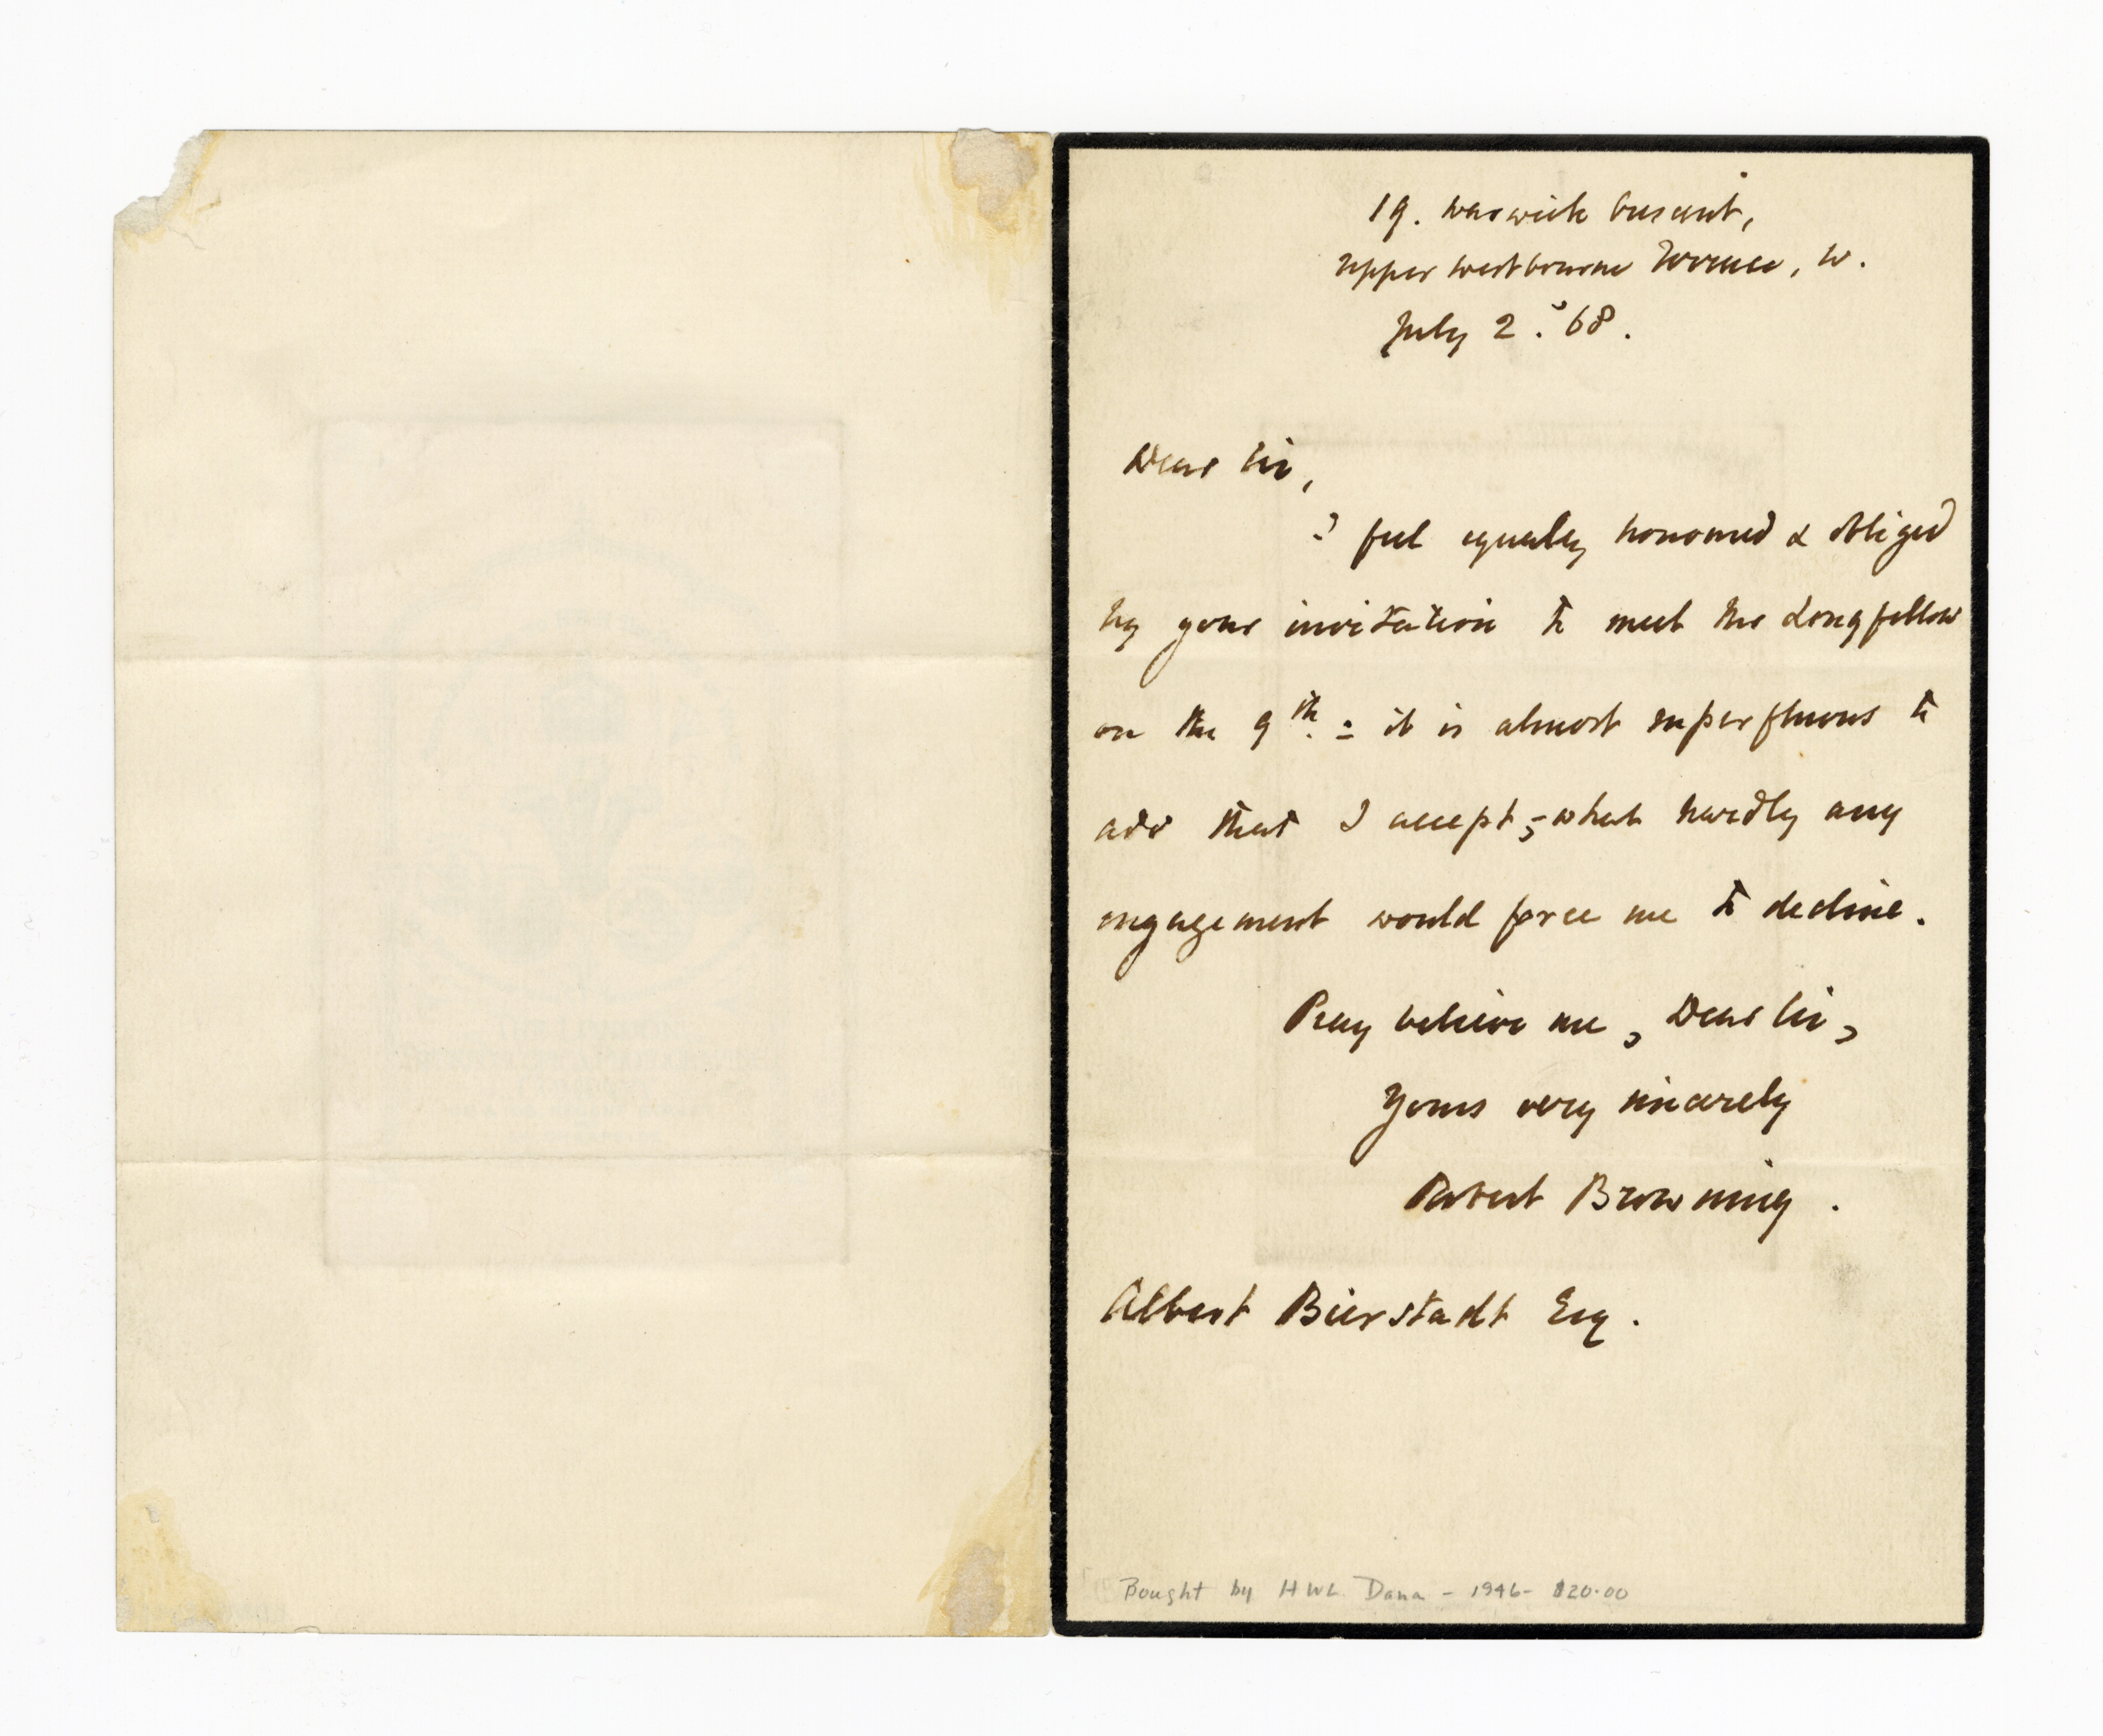 19. Warwick Crescent,
Upper Westbourne Terrace, W.
July 2. '68.
Dear Sir,
I feel equally honored & obliged
by your invitation to meet Mr Longfellow
on the 9th. : it is almost superfluous to
add that I accept, - what hardly any
engagement would force me to decline.
Pray believe me, Dear Sir,
Yours very sincerely
Robert Browning.
Albert Bierstadt Esq.
Bought by HWL Dana - 1946 - $20.00